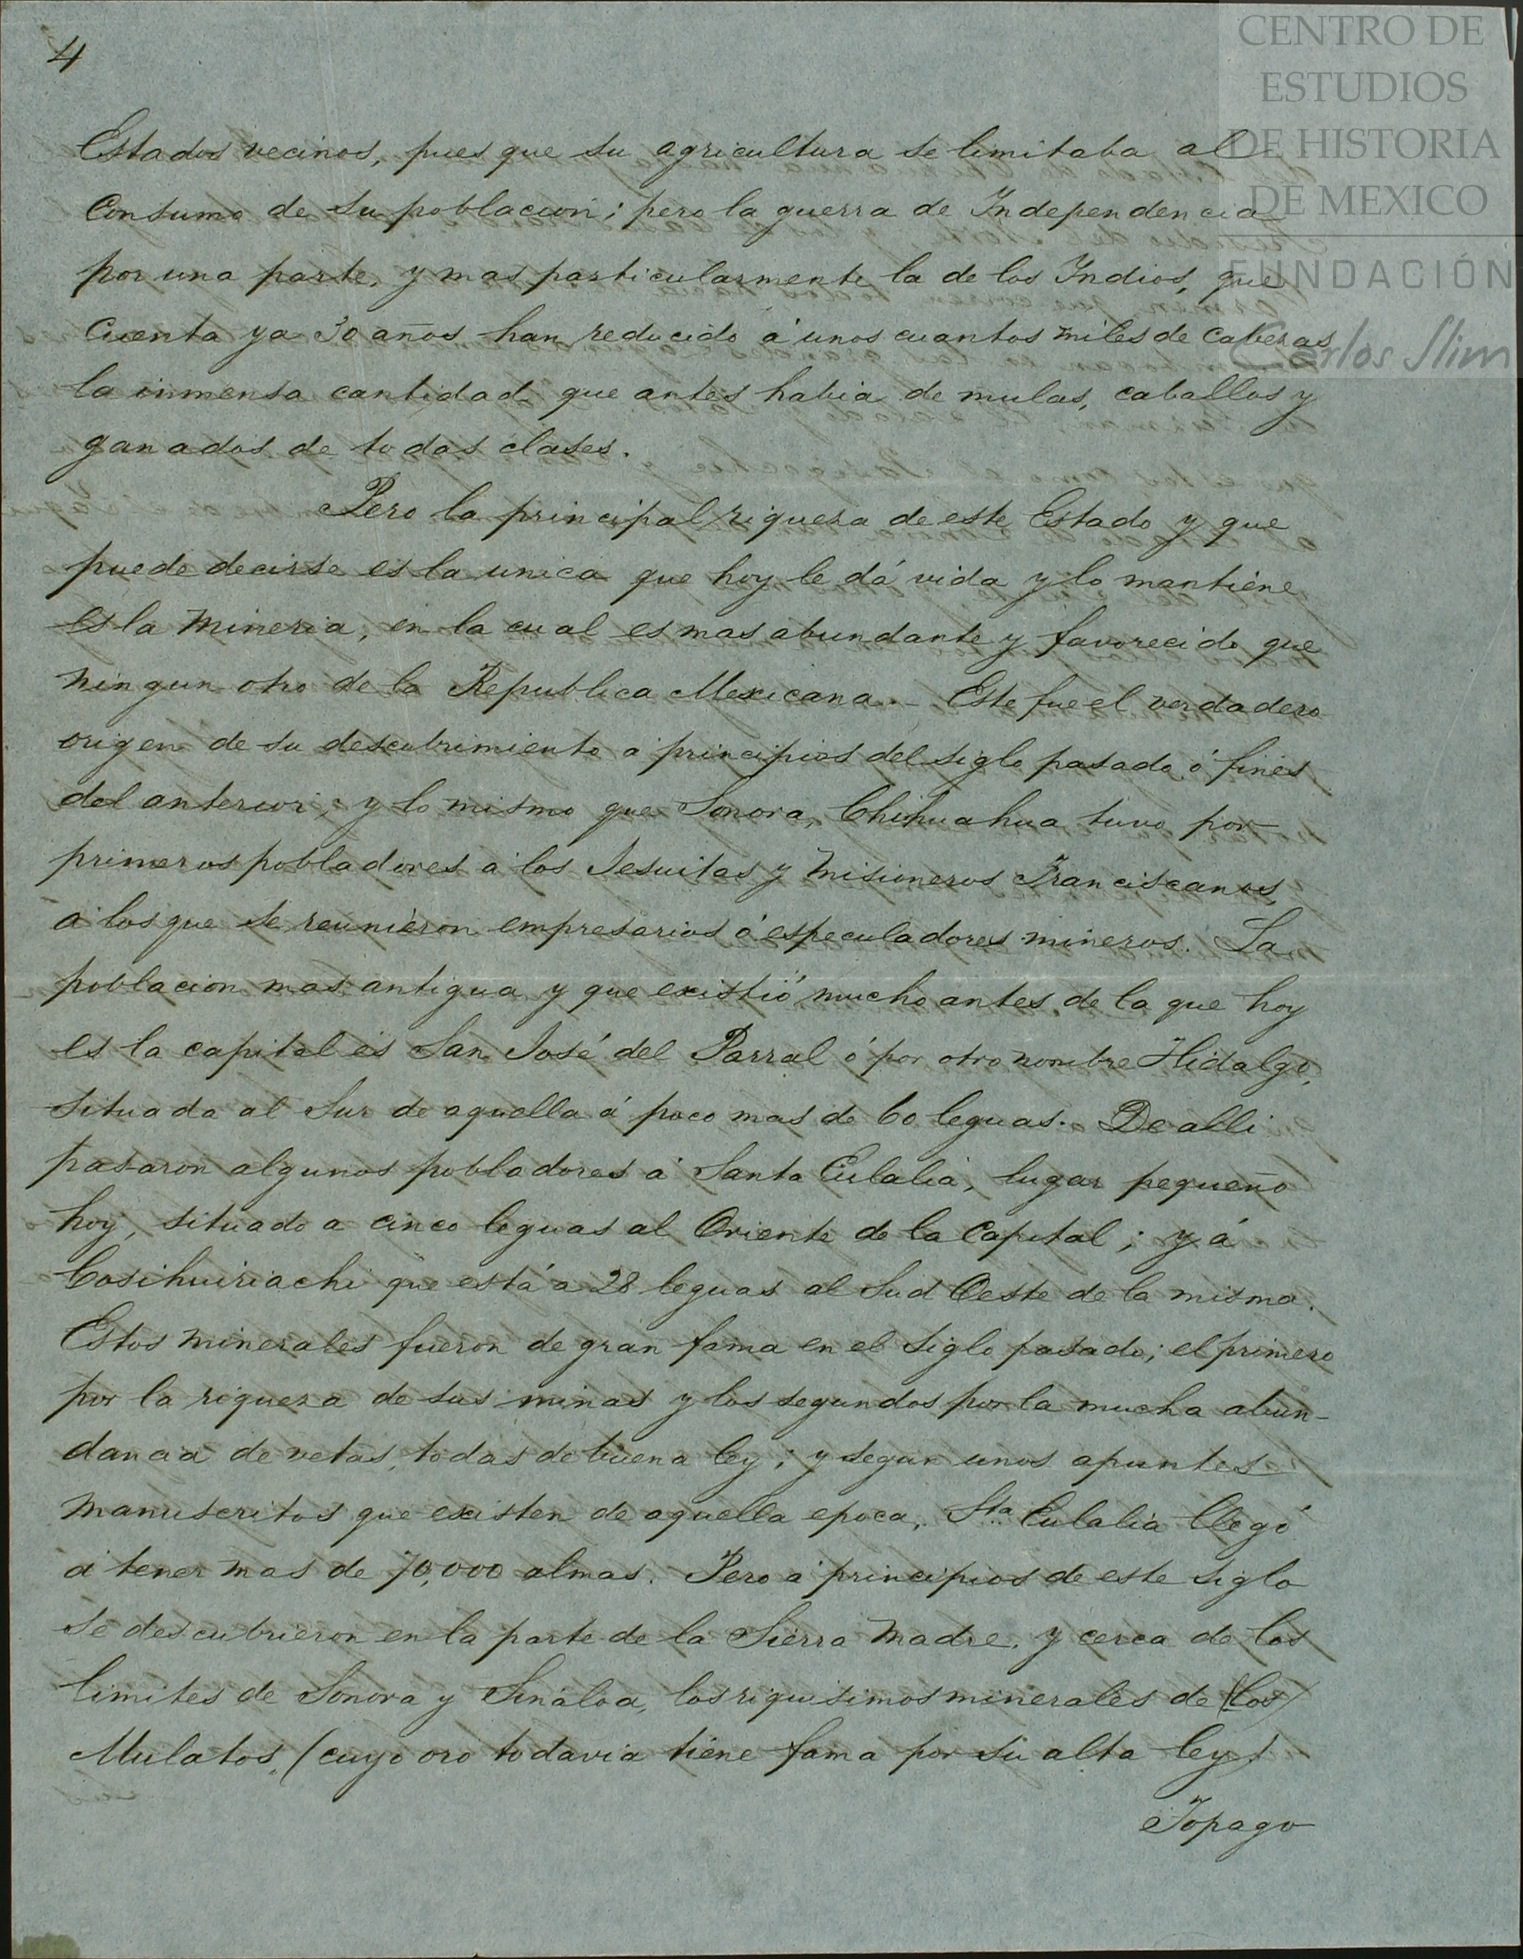 4
CENTRO DE
ESTUDIOS
DE HISTORIA
DE MEXICO
FUNDACIÓN
Carlos Slim
Estados vecinos, pues que su agricultura se limitaba al
consumo de su poblacion; pero la guerra de Independencia
por una parte, y mas particularmente la de los Indios, que
cuenta ya 30 años han reducido á unos cuantos miles de caberas
la inmensa cantidad que antes habia de mulas, caballos y
ganados de todas clases.
Pero la principal riquera de este Estado y que
puede decirse es la unica que hoy le dá vida y lo mantiene
es la Mineria, en la cual es mas abundante y favorecido que
ningun otro de la Republica Mexicana. Este fue el verdadero
origen de su descubrimiento a principios del siglo pasado, ó fines
del anterior; y lo mismo que Sonora, Chihuahua tuvo por
primeros pobladores a los Jesuitas y Misioneros Franciscanos,
a los que se reunieron empresarios ó especuladores mineros. La
poblacion mas antigua y que existió mucho antes de la que hoy
es la capital es San José del Parral ó por otro nombre Hidalgo,
situada al Sur de aquella á poco mas de 60 leguas. De alli
pasaron algunos pobladores á Santa Eulalia, lugar pequeño
hoy, situado a cinco leguas al Oriente de la Capital; y á
Cosihuiriachi que está a 28 leguas al Sud Oeste de la misma.
Estos minerales fueron de gran fama en el siglo pasado; el primero
por la riquera de sus minas y los segundos por la mucha abun-
dancia de vetas, todas de buena ley; y segun unos apuntes
manuscritos que existen de aquella epoca, Sta. Eulalia llegó
á tener mas de 70,000 almas. Pero a principios de este siglo
se descubrieron en la parte de la Sierra Madre, y cerca de los
limites de Sonora y Sinaloa, los riquisimos minerales de (los)
Mulatos, (cuyo oro todavia tiene fama por su alta ley)
Topago